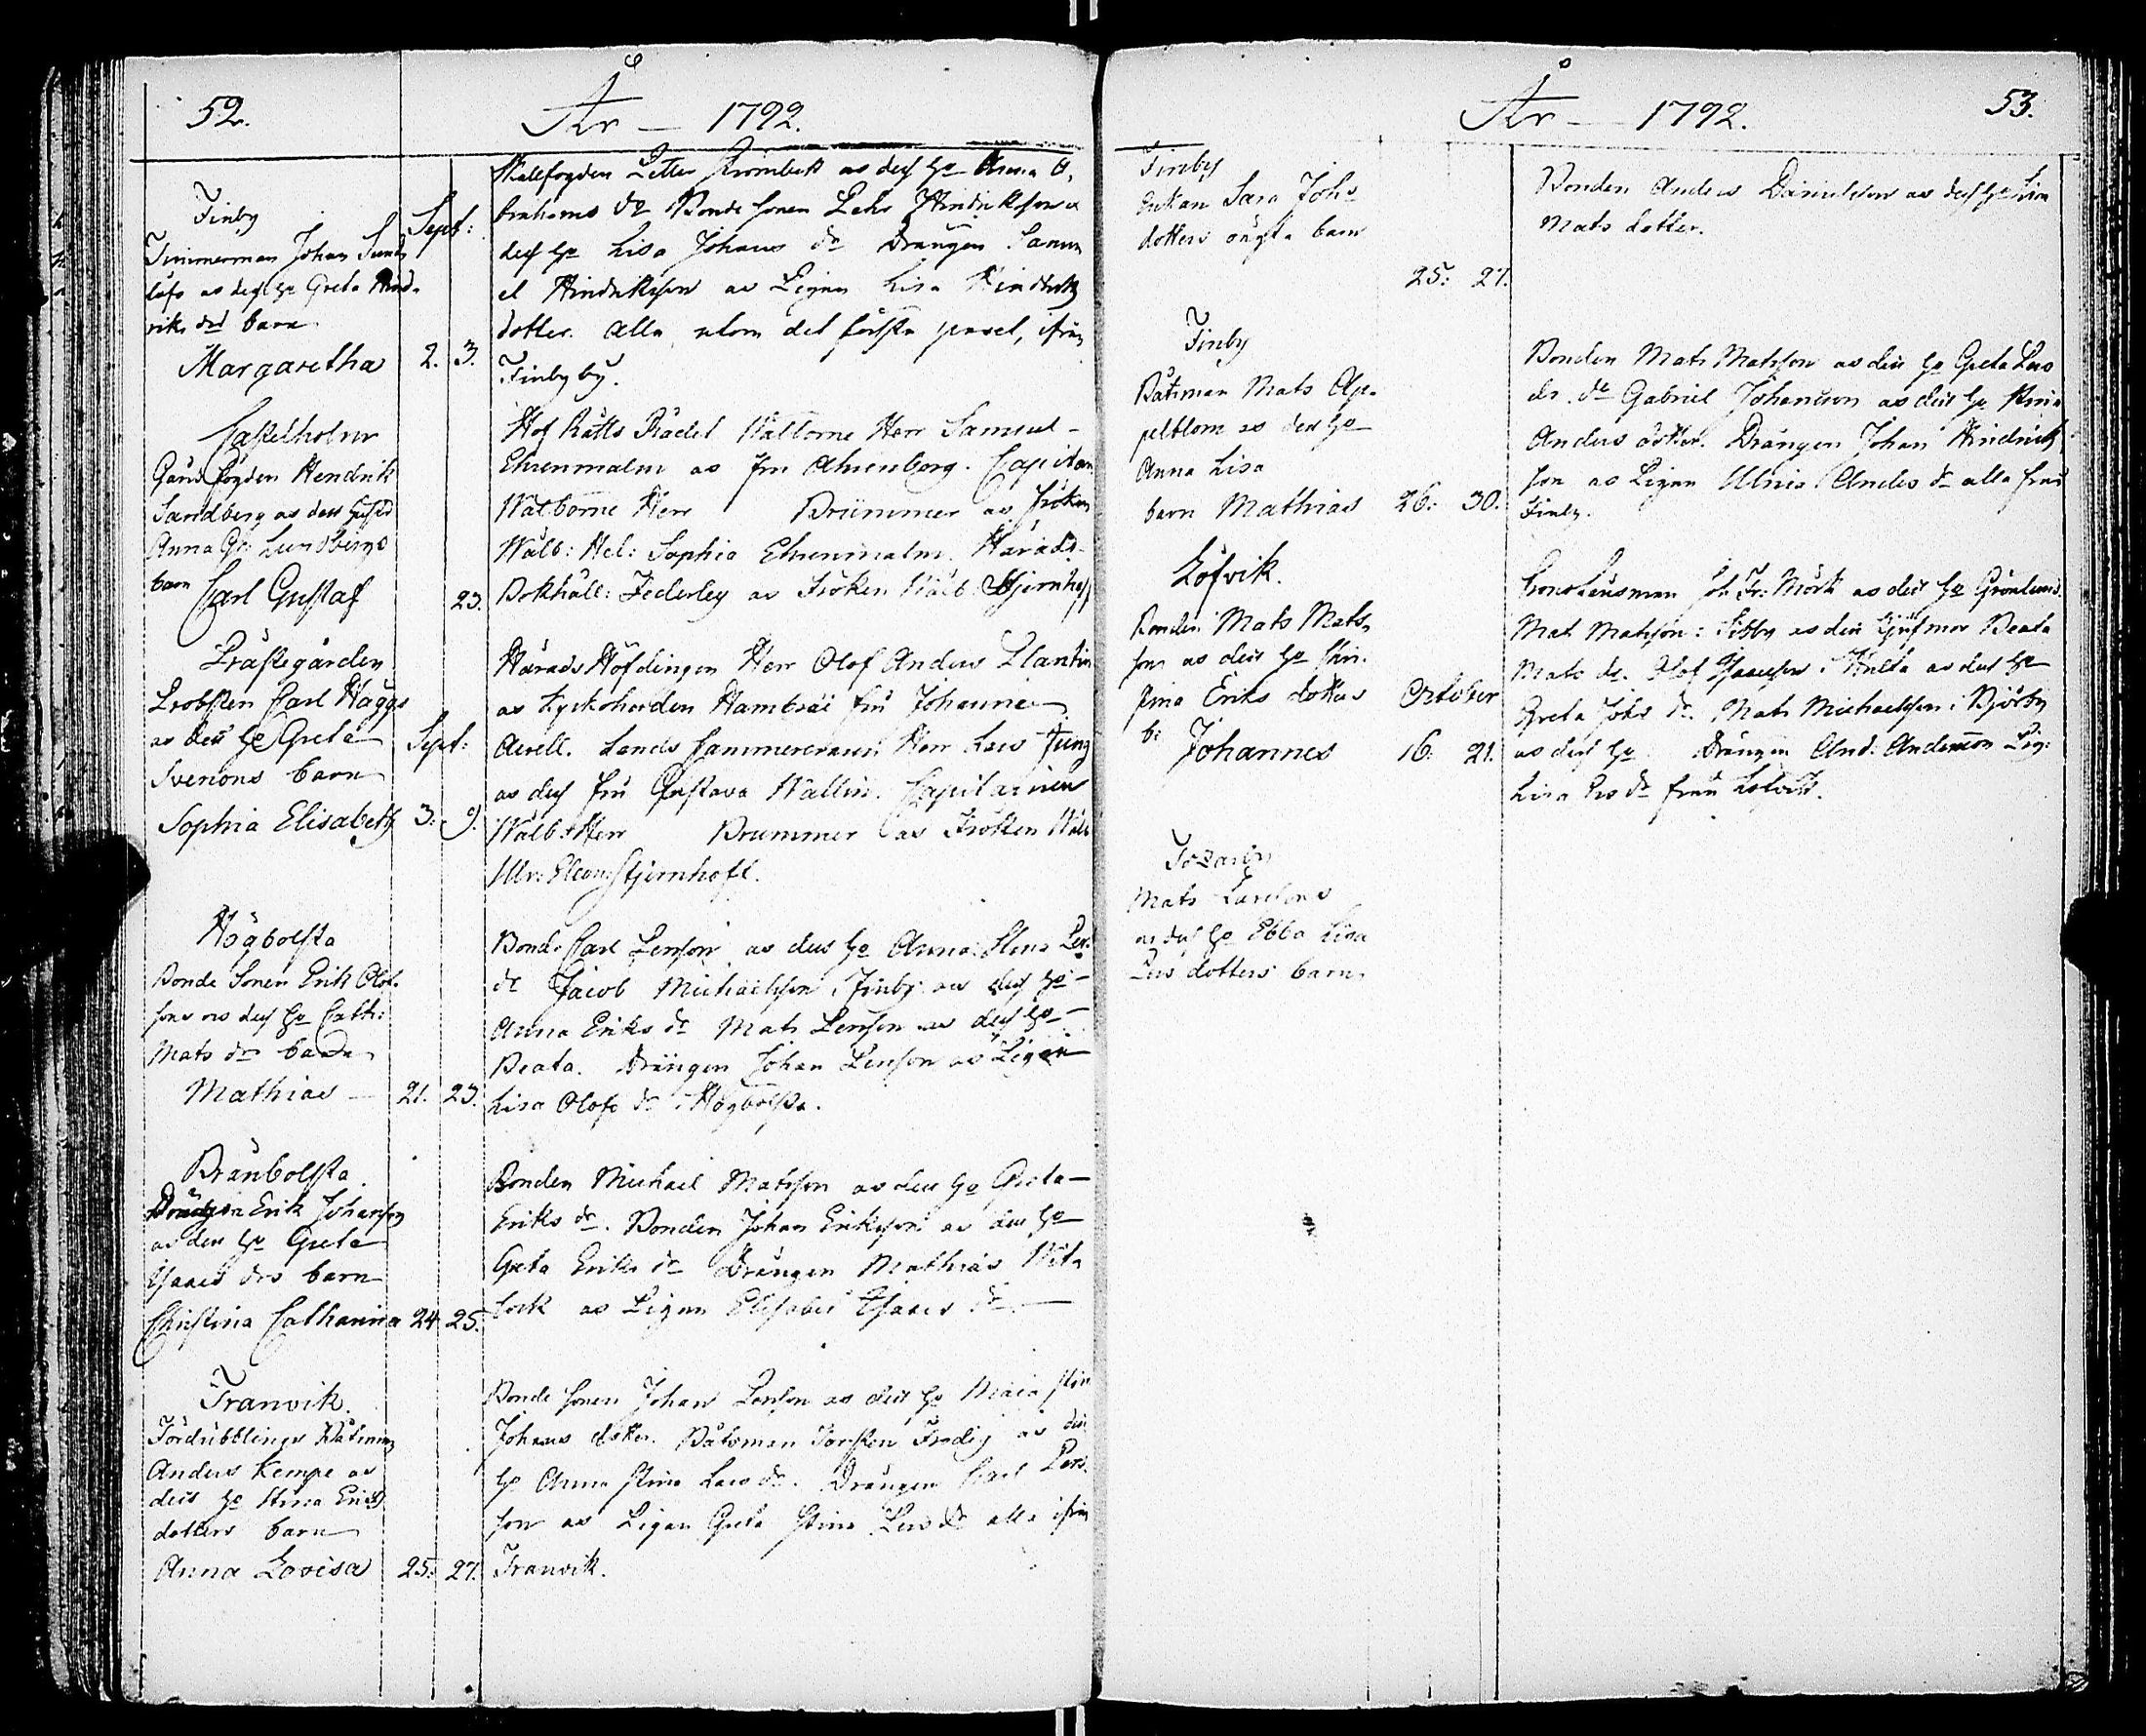 52.
År — 1792.
Finby
Sept:
Timmerman Johan Sund
löfs as dess ho Greta Hind-
riks dr barn
Margaretha 2. 3.
Skallfogden Petter as dess ho Anna A-
brahams dr Bonde sonen Pehr Hindriksson as
dess ho Lisa Johans dr Drängen Samu
el Hindriksson as Pigan Lisa Hindriks
dotter. Alla utom det första paret, ifrån
Finby by.
Castelholm
Gårdsfogden Hendrik
Sandberg as dess hustr
Anna Gr: Lundbergs
barn Carl Gustaf 23.
Hof Rätts Rådet Wälborne Herr Samuel
Ehrenmalm as fru Ahrenborg. Capiten
Wälborne Herr Brümmer as fröken
Wälb: Hel: Sophia Ehrenmalm. Härads-
Bokhåll: Federley as Fröken Wälb: Stjernhoff
Prästegården
Probsten Carl Häggs
as dess ho Greta
Svenons barn
Sept:
Sophia Elisabeth 3. 9.
Härads Höfdingen Herr Olof Anders Plantin
as Kyrkoherden Hambræi fru Johanna
Avell. Lands Cammereraren Herr Lars Jung
as dess fru Gustava Wallin. Capitainen
Wälb: Herr Brummer as Fröken Wälb
Ulr: Eleon: Stjernhoff.
Högbolsta
Bonde Sonen Erik Olof-
sons as dess ho Cath:
Mats dr barn
Mathias — 21. 23.
Bond. Carl Person as dess ho Anna Stina Pers
dr Jacob Michaelsson i Finby as dess ho
Anna Eriks dr Mats Person as dess ho
Beata. Drängen Johan Person as Pigan
Lisa Olofs dr i Högbolsta.
Bränbolsta.
Drängen Erik Johanson
as dess ho Greta
Isaacs drs barn
Christina Catharina 24. 25.
Bonden Michael Matsson as dess ho Greta
Eriks dr. Bonden Johan Eriksson as dess ho
Greta Eriks dr Drängen Mathias
as Pigan Elisabet Isaacs dr.
Tranvik.
Fördubblings Båtsman
Anders Kempe as
dess ho Stina Eriks
dotters barn
Anna Lovisa 25. 27.
Bonde sonen Johan Person as dess ho Maia Stin
Johans dotter. Båtsman Torsten Frodig as dess
ho Anna Stina Lars dr. Drängen Carl Pers-
son as Pigan Greta Stina Pers dr alla ifrån
Tranvik.
År — 1792.
53.
Finby
Enkan Sara Johs
dotters oägta barn
25: 27.
Bonden Anders Danielsson as dess ho Lisa
Mats dotter.
Finby
Båtsman Mats Ap-
pelblom as dess ho
Anna Lisa
barn Mathias 26: 30.
Bonden Mats Matsson as dess ho Greta Pers
dr. do Gabriel Johansson as dess ho
Anders dotter. Drängen Johan Hindrich
son as Pigan Anders dr alla från
Finby.
Löfvik.
Bonden Mats Mats-
sons as dess ho Chri-
stina Eriks dotters
October
b: Johannes 16: 21.
Crono Länsman Joh Fr: Mörk as dess ho Grönlund.
Mat Matsson: Sibby as dess Styfmor Beata
Mats dr. Olof Isacsson i Hulta as dess ho
Greta Johs dr. Mats Michaelsson i Björby
as dess ho Drängen And: Andersson Pig:
Lisa Pers dr från Löfvik.
Mats Larssons
as dess ho Ebba Lisa
Pers dotters barn